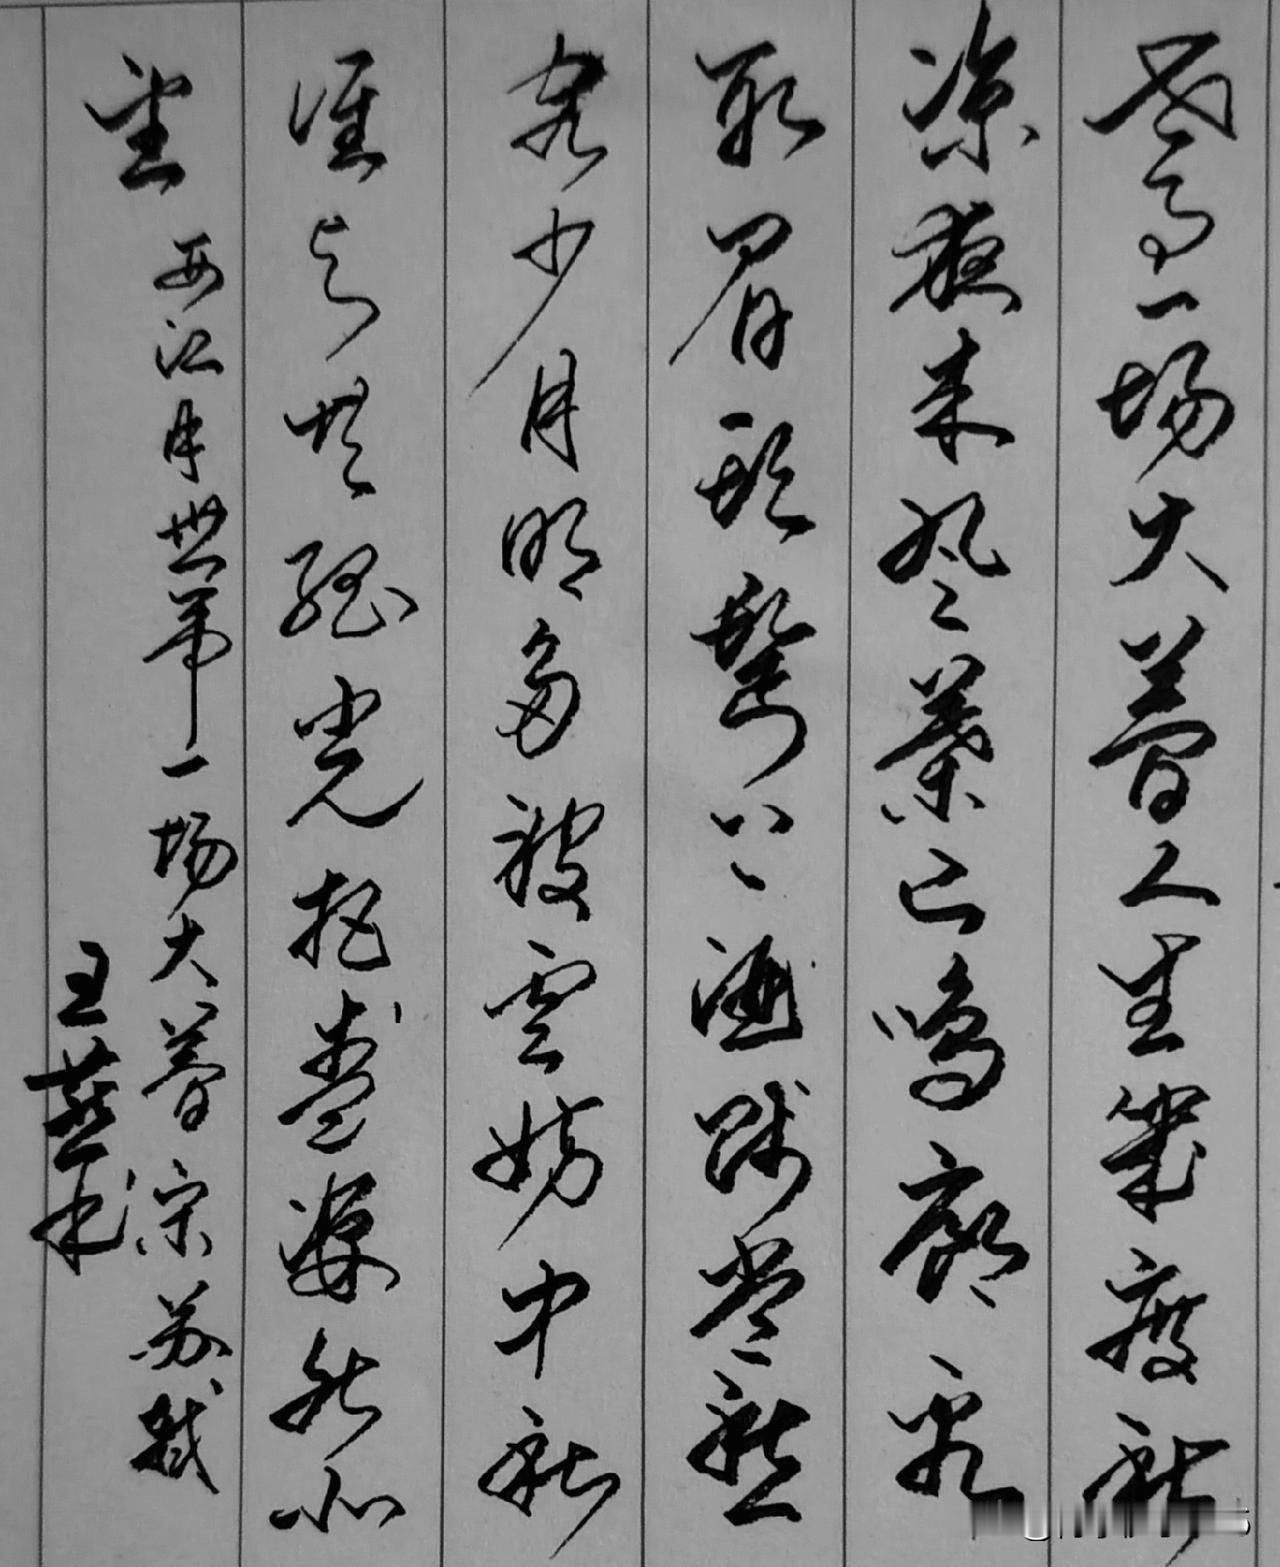 世事一场大夢人生幾度秋
凉夜来风葉已鸣廊看
取眉头鬓上酒贱常愁
客少月明多被雲妨中秋
谁与共孤光把盏凄然北
望
西江月世事一场大夢宋苏轼
王燕书